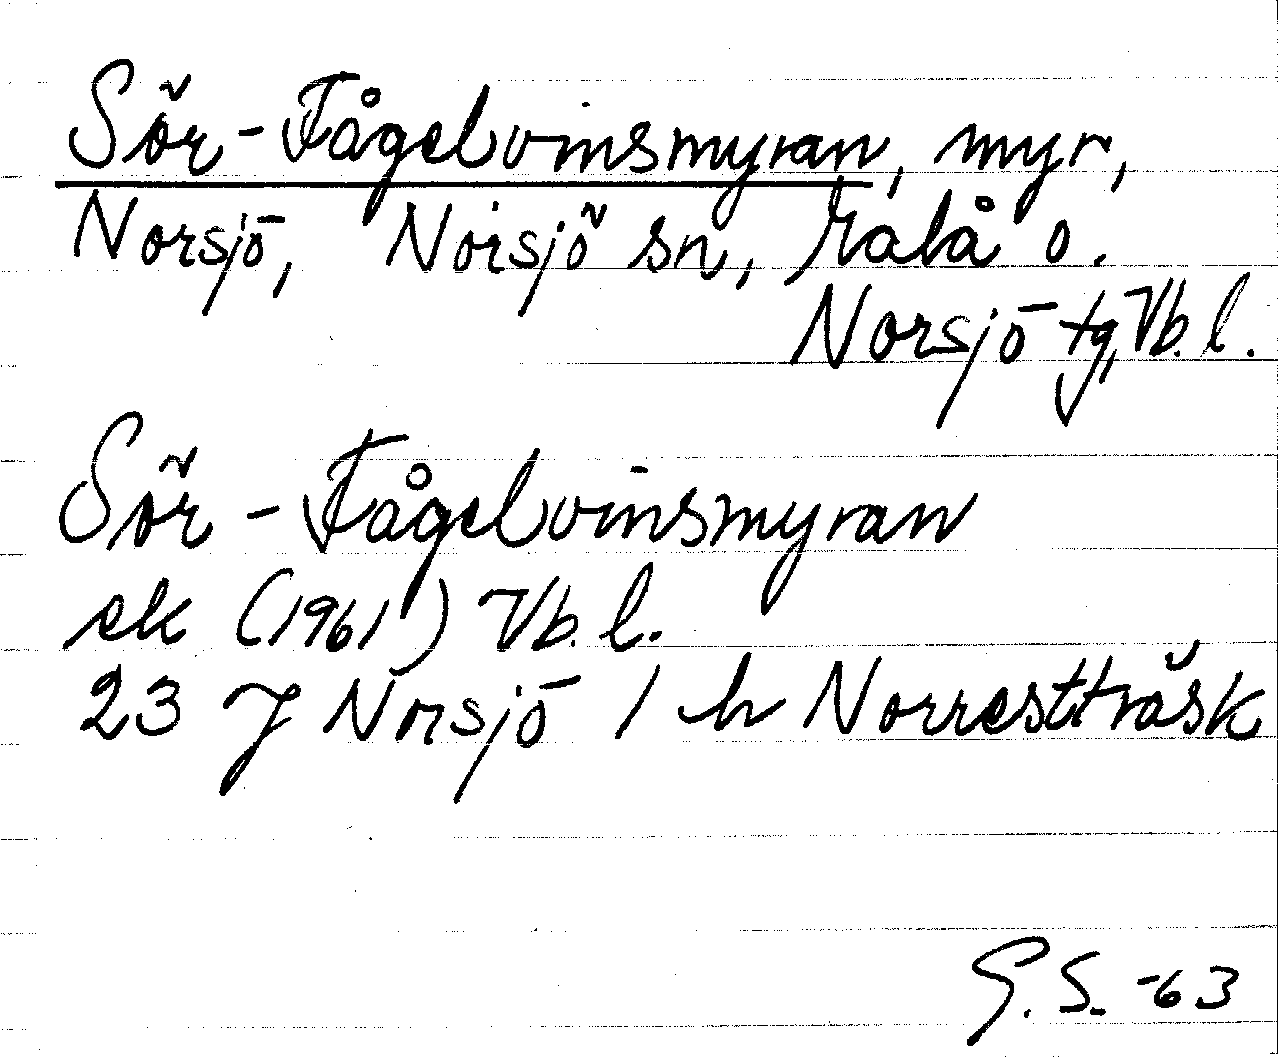 Sör-Fågelvinsmyran, myr,
Norsjö, Norsjö sn, Malå o.
Norsjö tg, Vb. l.
Sör-Fågelvinsmyran
ek (1961) Vb. l.
23 J Norsjö 1 h Norrestträsk
G. S. -63